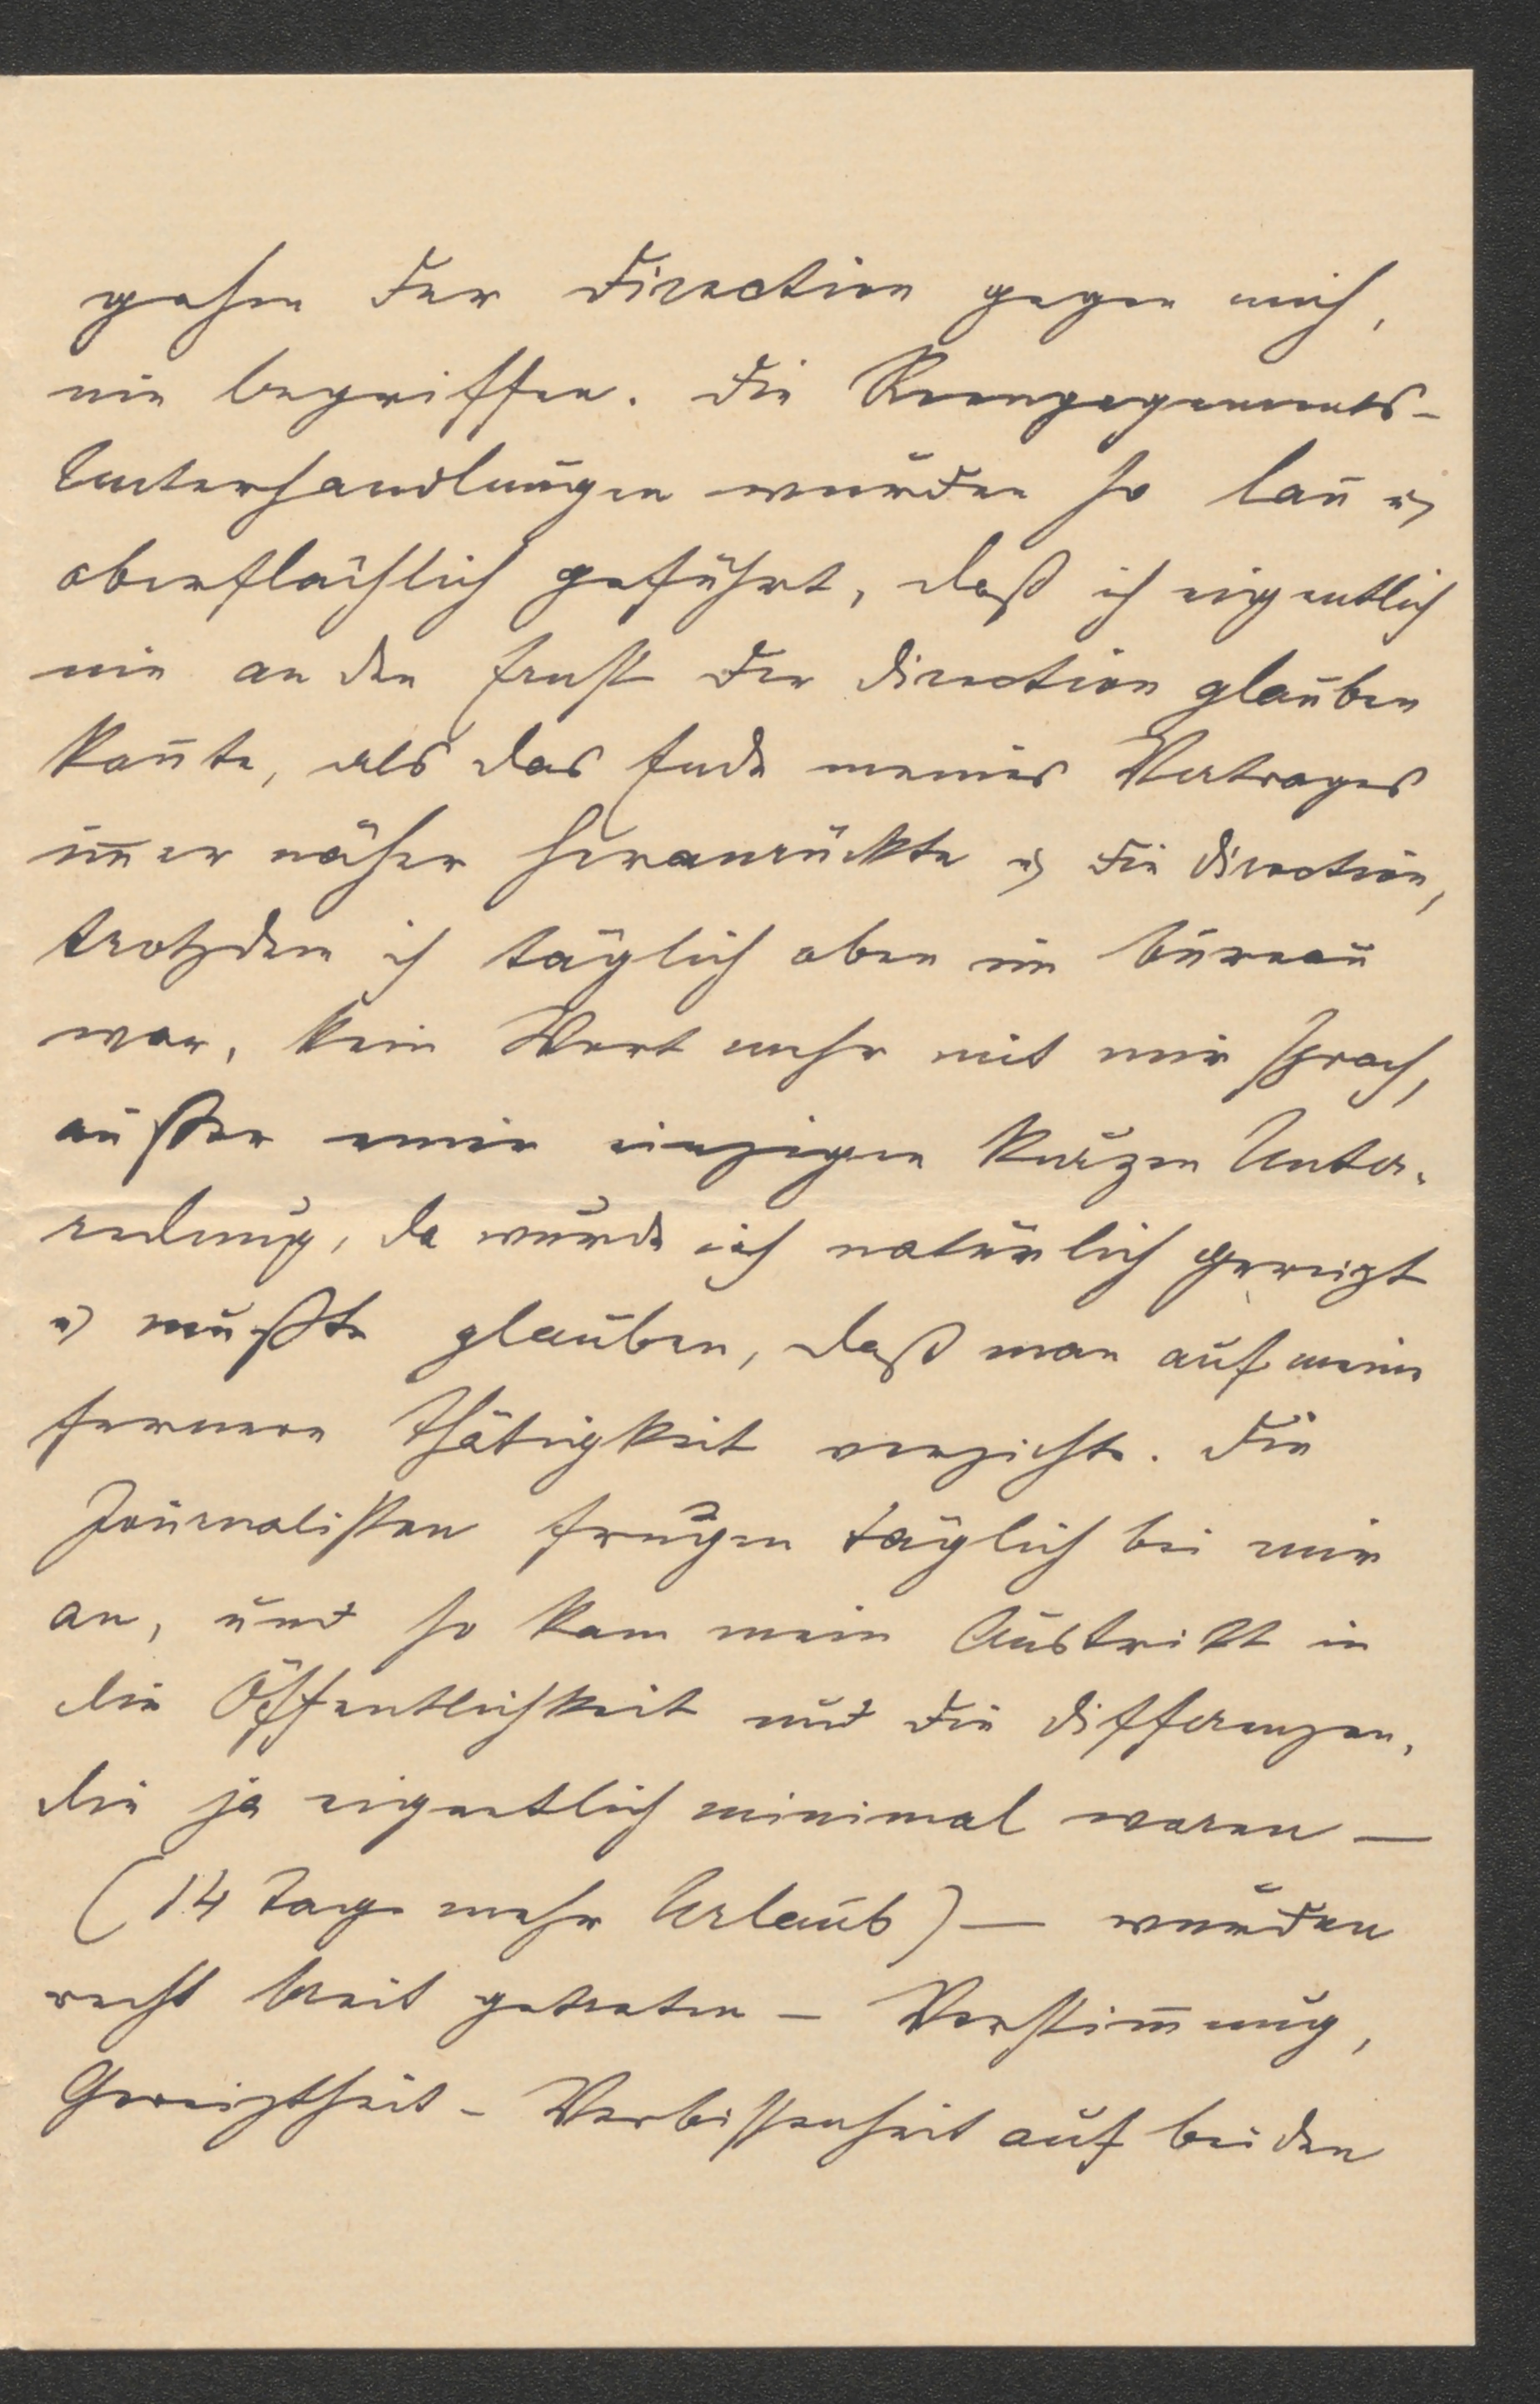 gehen der Direction gegen mich,
nie begriffen. Die Reengagements-
Unterhandlungen wurden so lau u
oberflächlich geführt, daß ich eigentlich
nie an den Ernst der Direction glauben
kon̄te, als das Ende meines Vertrages
im̄er näher heranrückte u die Direction,
trotzdem ich täglich oben im Bureau
war, kein Wort mehr mit mir sprach,
außer einer einzigen kurzen Unter-
redung, da wurde ich natürlich gereizt
u mußte glauben, daß man auf meine
fernere Thätigkeit verzichte. Die
Journalisten frugen täglich bei mir
an, und so kam mein Austritt in
die Öffentlichkeit und die Differenzen,
die ja eigentlich minimal waren —
(14 Tage mehr Urlaub) — wurden
recht breit getreten – Verstim̄ung,
Gereiztheit – Verbissenheit auf beiden